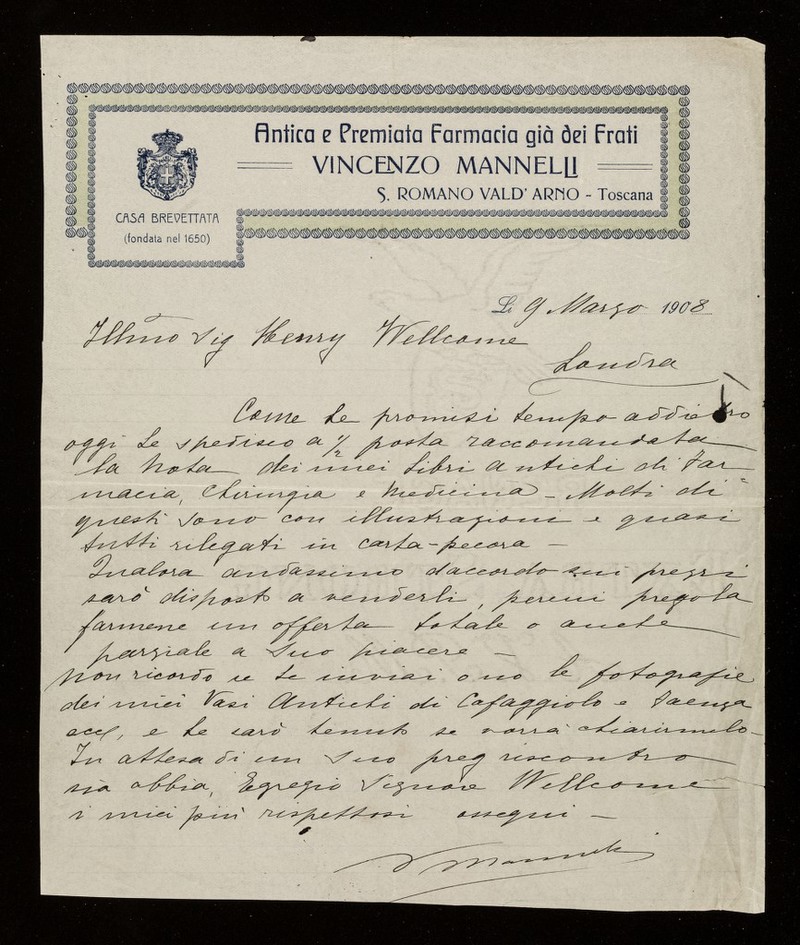 Antica e Premiata Farmacia già dei Frati
VINCENZO MANNELLI
S. ROMANO VALD' ARNO - Toscana
CASA BREVETTATA
(fondata nel 1650)
Li 9 Marzo 1908
Illmo Sig Henry Wellcome
Londra
Come Le promisi tempo addietro
oggi Le spedisco a ½ posta raccomandata
la Nota dei miei Libri antichi di Far=
macia, Chirurgia e Medicina - Molti di
questi sono con illustrazioni e quasi
tutti rilegati in carta-pecora -
Qualora andassimo daccordo sui prezzi
sarò disposto a venderli, percui pregola
farmene un offerta totale o anche
parziale a Suo piacere -
Non ricordo se Le inviai o no le fotografie
dei miei Vasi Antichi di Cafaggiolo e Faenza
ecc, e Le sarò tenuto se vorrà chiarirmelo -
In attesa di un Suo preg riscontro
si abbia, Egregio Signore Wellcome
i miei più rispettosi ossequi -
V Mannelli